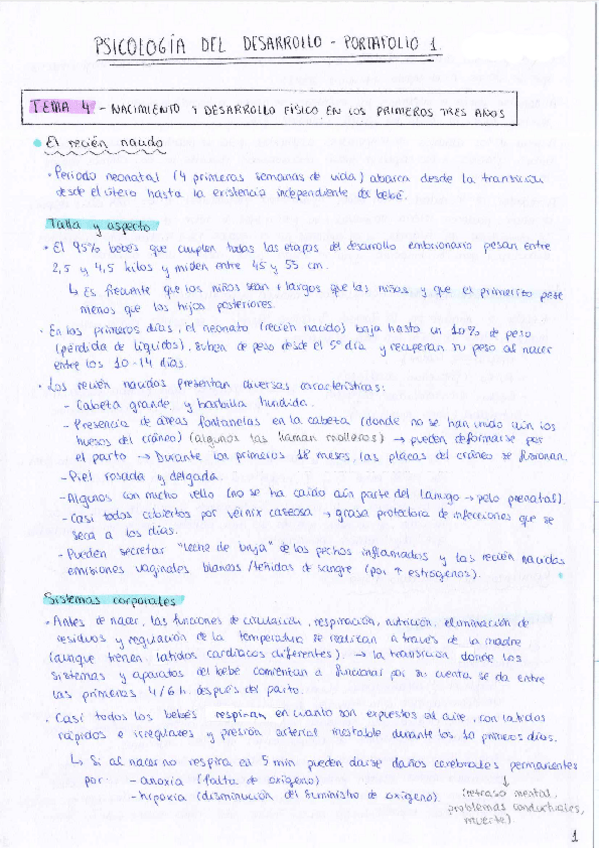 PSICOLOGÍA DEL DESARROLLO - PORTAFOLIO 1.
TEMA 4 - NACIMIENTO Y DESARROLLO FÍSICO EN LOS PRIMEROS TRES AÑOS
• El recién nacido
• Periodo neonatal (4 primeras semanas de vida) abarca desde la transición
desde el útero hasta la existencia independiente del bebé.
Talla y aspecto
• El 95% bebés que cumplen todas las etapas del desarrollo embrionario pesan entre
2,5 y 4,5 kilos y miden entre 45 y 55 cm.
↳ Es frecuente que los niños sean + largos que las niñas y que el primerizo pese
menos que los hijos posteriores.
• En los primeros días, el neonato (recién nacido) baja hasta un 10% de peso
(pérdida de líquidos), suben de peso desde el 5º día y recuperan su peso al nacer
entre los 10-14 días.
• Los recién nacidos presentan diversas características:
- Cabeza grande y barbilla hundida.
- Presencia de áreas fontanelas en la cabeza (donde no se han unido aún los
huesos del cráneo) (algunos las llaman molleras) → pueden deformarse por
el parto → Durante los primeros 18 meses, las placas del cráneo se fusionan.
- Piel rosada y delgada.
- Algunos con mucho vello (no se ha caído aún parte del lanugo → pelo prenatal).
- Casi todos cubiertos por vérnix caseosa → grasa protectora de infecciones que se
seca a los días.
- Pueden secretar "leche de bruja" de los pechos inflamados y las recién nacidas
emisiones vaginales blancas/teñidas de sangre (por ↑ estrógenos).
Sistemas corporales
• Antes de nacer, las funciones de circulación, respiración, nutrición, eliminación de
residuos y regulación de la temperatura se realizan a través de la madre
(aunque tienen latidos cardíacos diferentes). → la transición donde los
sistemas y aparatos del bebé comienzan a funcionar por su cuenta se da entre
las primeras 4/6 h. después del parto.
• Casi todos los bebés respiran en cuanto son expuestos al aire, con latidos
rápidos e irregulares y presión arterial inestable durante los 10 primeros días.
↳ Si al nacer no respira en 5 min pueden darse daños cerebrales permanentes
por: - anoxia (falta de oxígeno)
- hipoxia (disminución del suministro de oxígeno).
↓
(retraso mental,
problemas conductuales,
muerte)
1